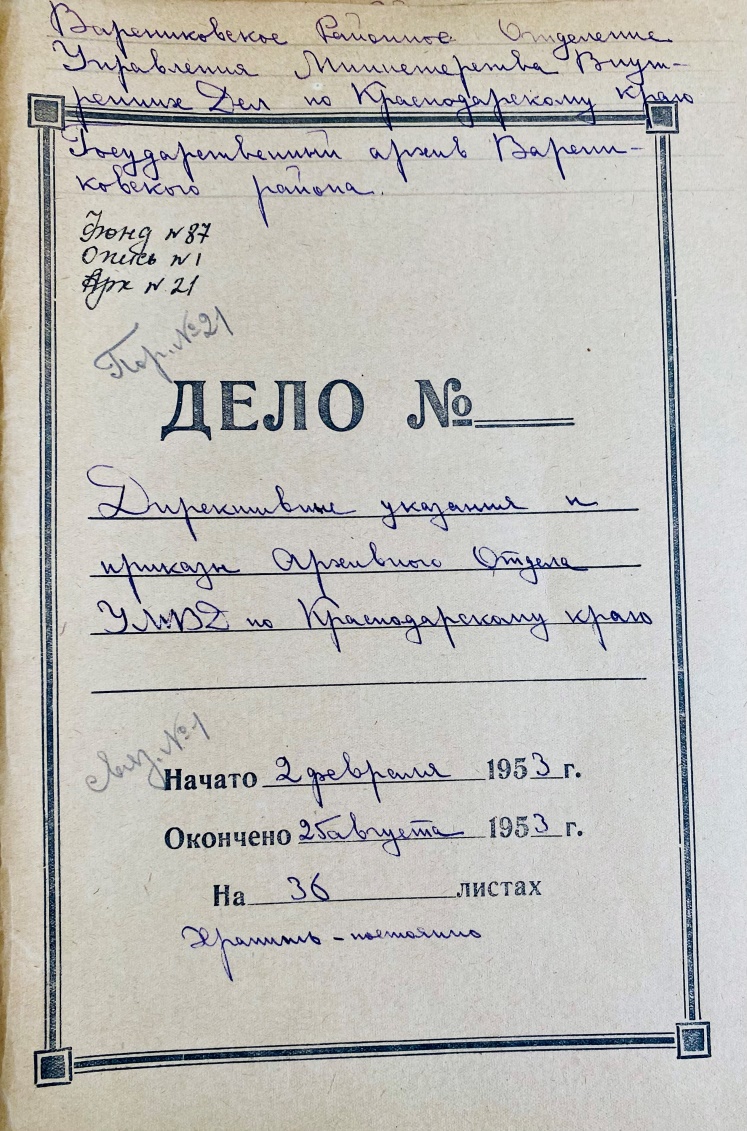 Варениковское Районное Отделение
Управления Министерства Внут-
ренних Дел по Краснодарскому краю
Государственный архив Варени-
ковского района.
Фонд N 87
Опись N 1
Арх N 21
Пор. №21
ДЕЛО №
Директивные указания и
приказы Архивного Отдела
УМВД по Краснодарскому краю
Связ. №1
Начато 2 февраля 1953 г.
Окончено 25 августа 1953 г.
На 36 листах
Хранить - постоянно